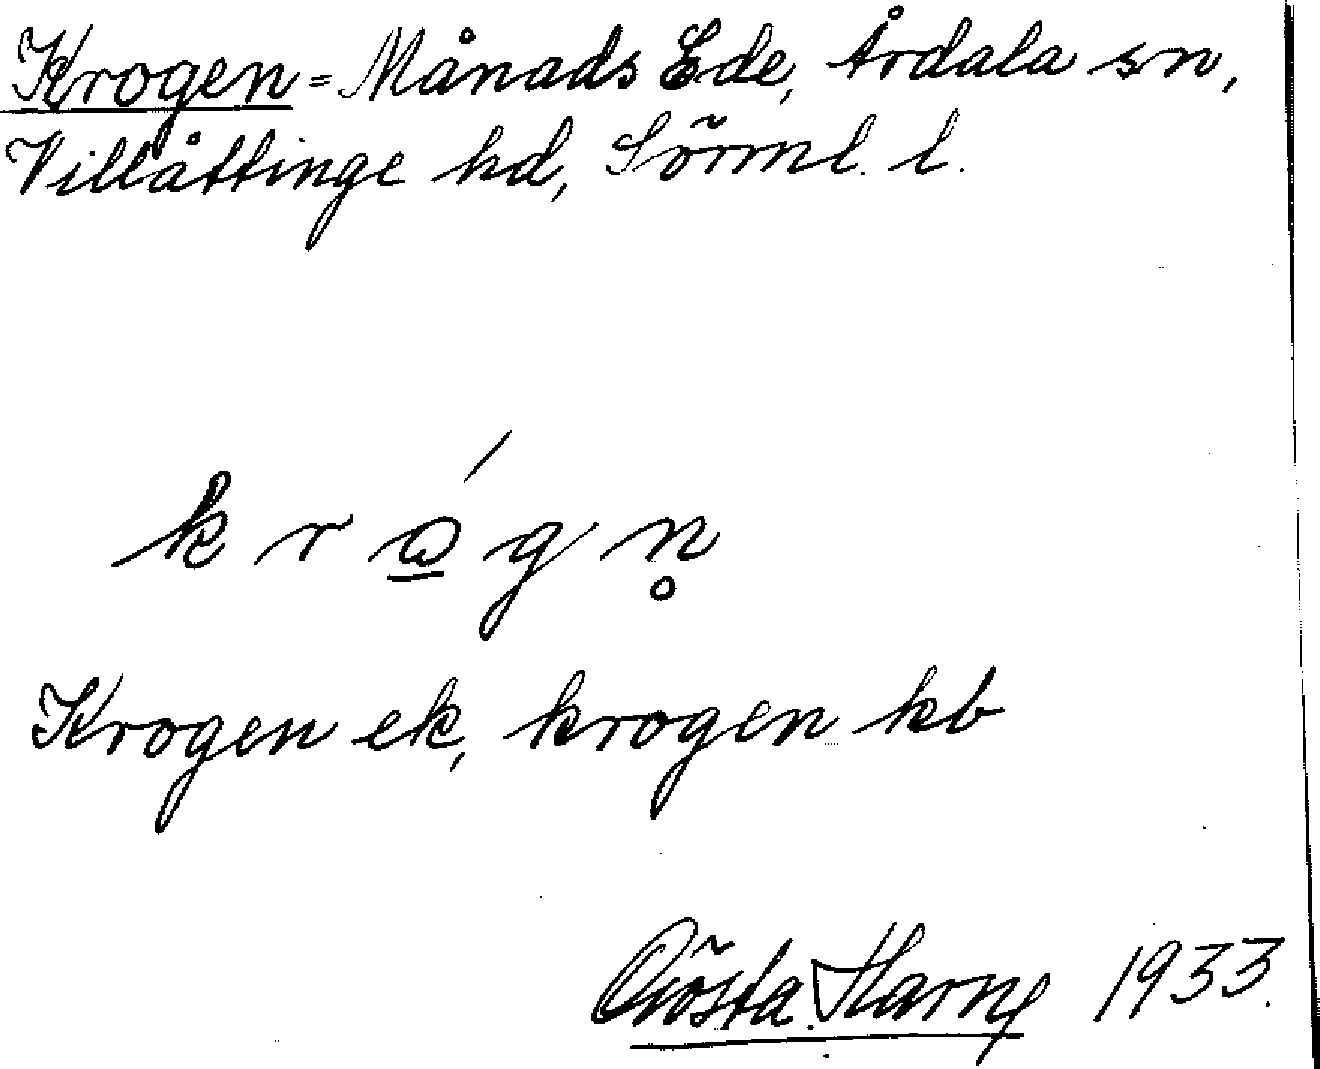 Krogen = Månads Ede, Årdala sn,
Villåttinge hd, Sörml. l.
k r ώ̲ g n̥
Krogen ek, krogen kb
Gösta 1933.